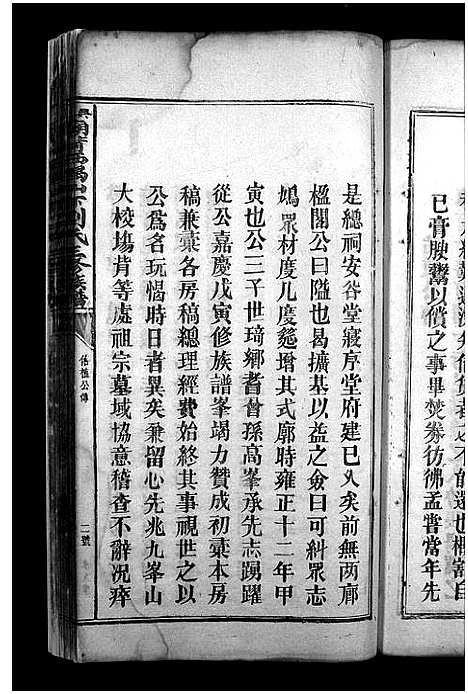 已膏腴鬻以償之事畢焚券彷彿孟嘗當年先
是總祠安谷堂寢序堂府建已久矣前無两廊
楹閣公曰隘也曷擴基以益之僉曰可糾眾志
鳩眾材度几度筵增其式廓時雍正十二年甲
寅也公三十世琦鄉耆曾孫高峯承先志踴躍
從公嘉慶戊寅修族譜峯竭力贊成初稾本房
稿兼稾各房稿總理經費始終其事視世之以
公爲名玩愒時日者異矣兼留心先兆九峯山
大校塲背等處祖宗墓域協意稽查不辭况瘁
劉氏
修族譜
公傳
二號